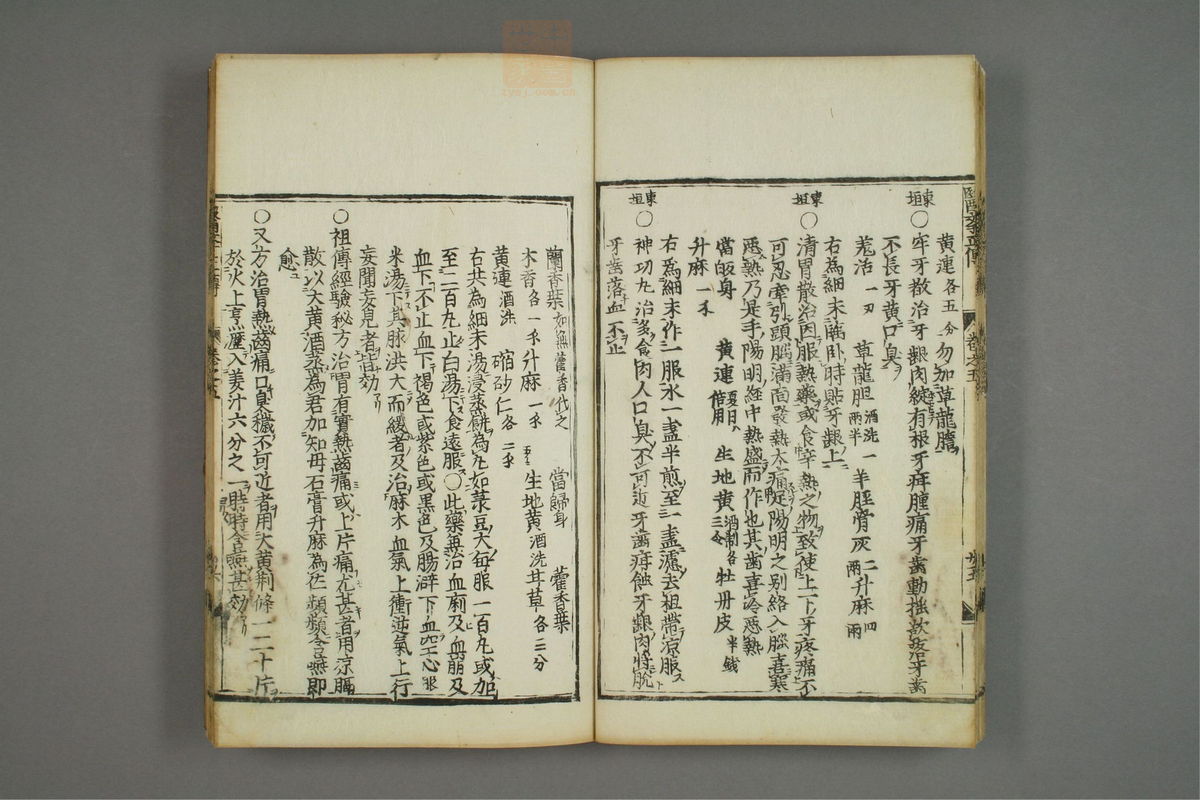 黄連各五分勿加草龍膽
東垣
○牢牙散治牙齦肉綻有根牙疳腫痛牙齒動揺欲落牙齒
不長牙黄口臭
羗活一刄 草龍胆酒洗一兩半 羊脛骨灰二兩 升麻四兩
右為細末臨卧時貼牙齦上
東垣
○清胃散治因服熱藥或食辛熱之物致使上下牙疼痛不
可忍牽引頭腦滿面發熱大痛足陽明之别絡入腦喜寒
惡熱乃是手陽明經中熱盛而作也其齒喜冷惡熱
當皈身 黄連夏日倍用 生地黄酒制各三分 牡丹皮半錢
升麻一
右為細末作一服水一盞半煎至一盞濾去柤帶凉服
東垣
○神功丸治多食肉人口臭不可近牙齒疳蝕牙齦肉將脫
牙齒落血不止
蘭香葉如無藿香代之 當歸身 藿香葉
木香各一 升麻一 生地黄酒洗 甘草各三分
黄連酒洗 縮砂仁各二
右共為細末湯浸蒸餅為丸如菉豆大每服一百丸或加
至二百丸止白湯下食遠服○此藥兼治血痢及血崩及
血下不止血下褐色或紫色或黑色及腸澼下血空心服
米湯下其脉洪大而緩者及治麻木血氣上衝逆氣上行
妄聞妄見者皆効
○祖傳經驗秘方治胃有實熱齒痛或上片痛尤甚者用凉膈
散以大黄酒蒸為君加知母石膏升麻為佐頻頻含嚥即
愈
○又方治胃熱齒痛口臭穢不可近者用大黄荆條一二十片
於火上烹瀝入姜汁六分之一時時含嚥甚効